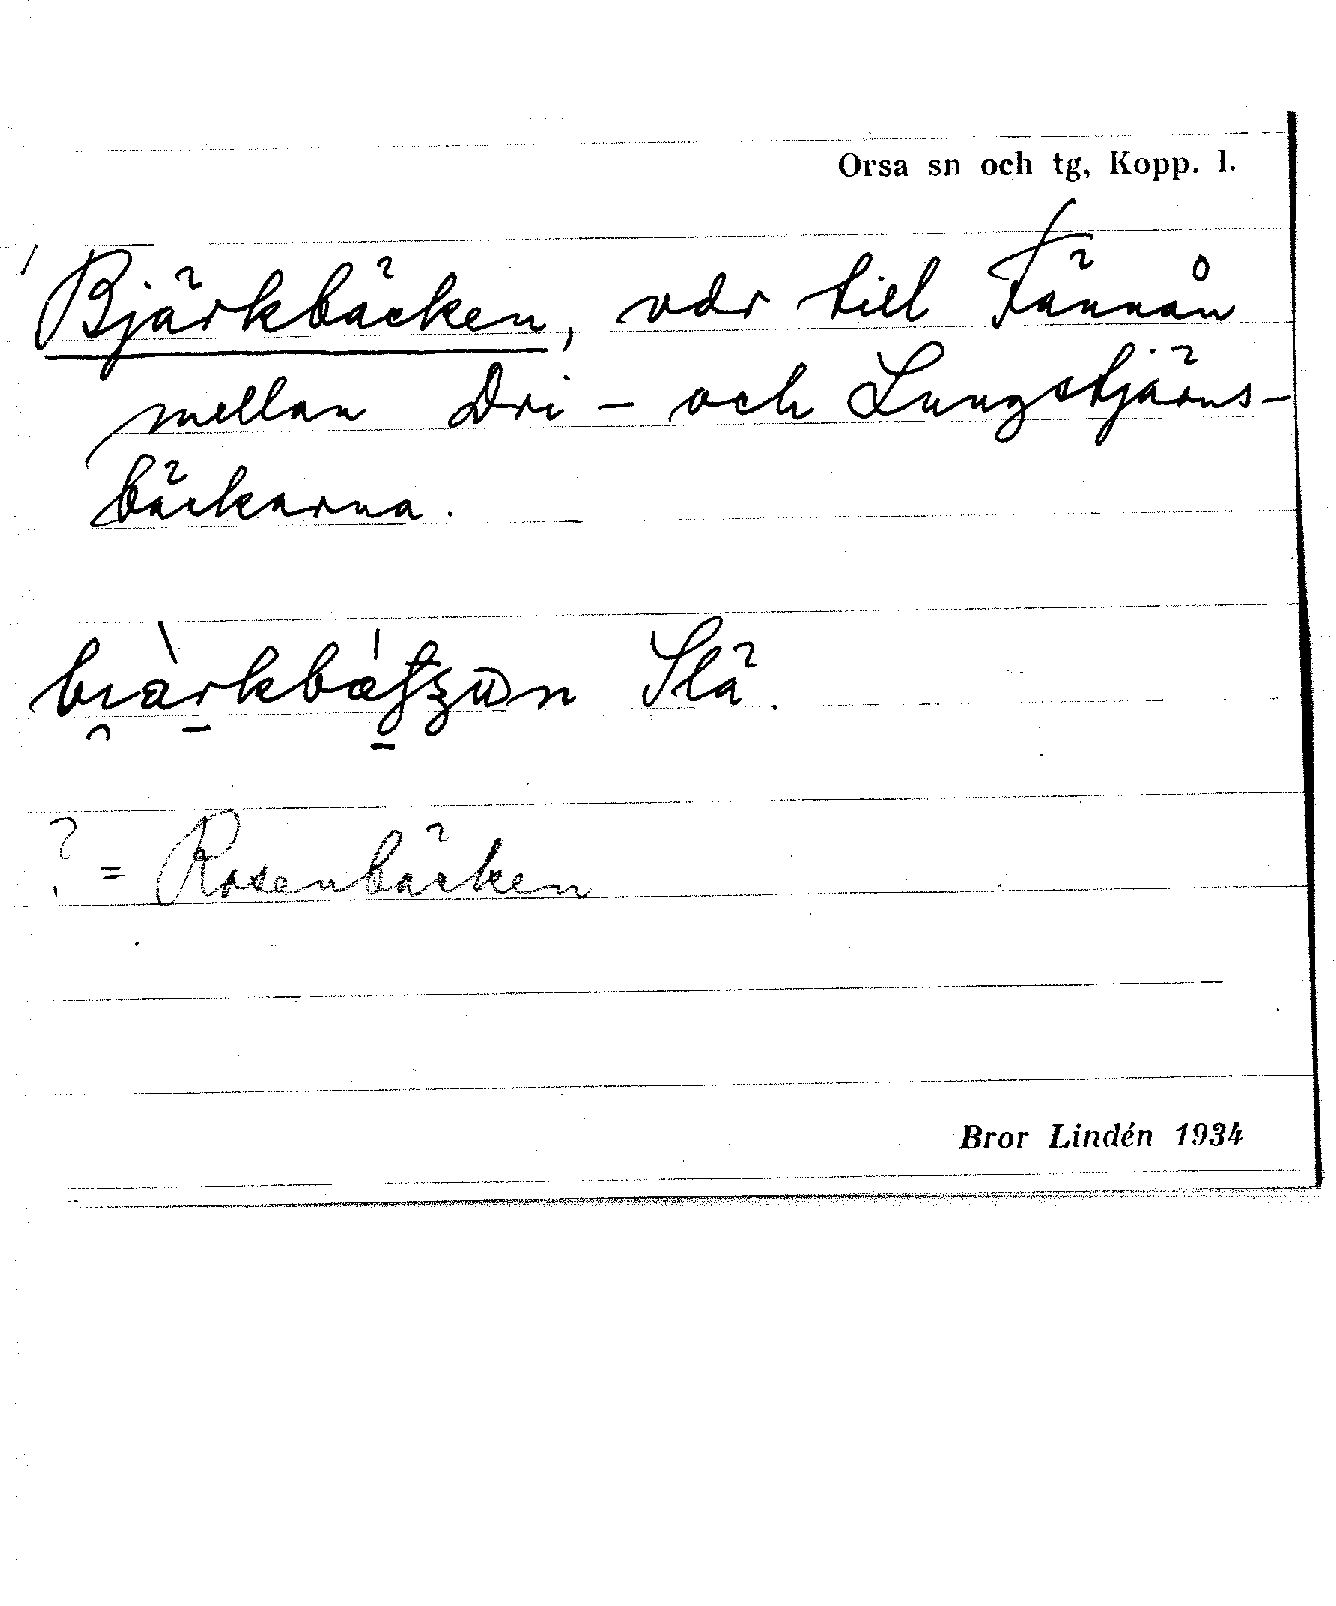 Orsa sn och tg, Kopp. l.
Bjärkbäcken, vdr till Fännån
mellan Dri- och Lungstjärns-
bäckarna.
Slä.
? = Rosenbäcken
Bror Lindén 1934